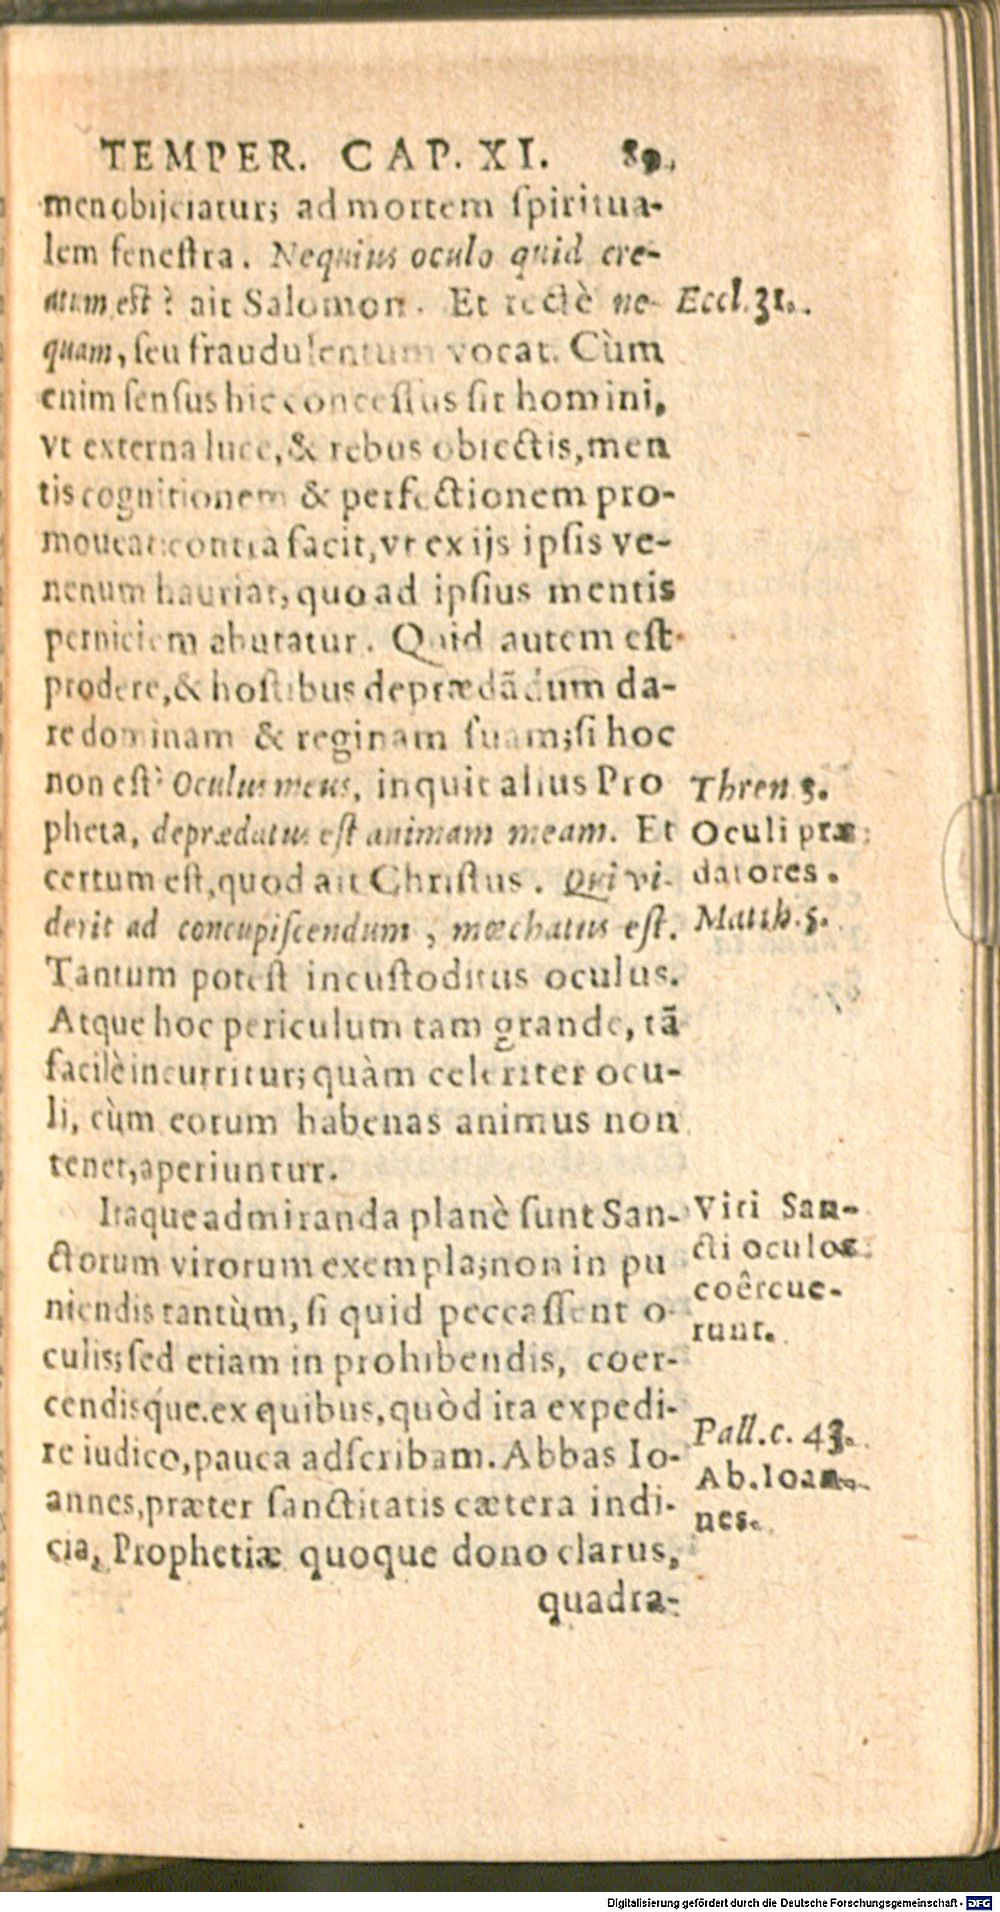 TEMPER. CAP. XI. 89.
men obijciatur; ad mortem ſpiritua-
lem feneſtra. Nequius oculo quid cre-
atum eſt? ait Salomon. Et rectè ne-
Eccl. 31.
quam, ſeu fraudulentum vocat. Cùm
enim ſenſus hic conceſſus ſit homini,
vt externa luce, & rebus obiectis, men
tis cognitionem & perfectionem pro-
moueat: contra facit, vt ex ijs ipſis ve-
nenum hauriat, quo ad ipſius mentis
perniciem abutatur. Quid autem eſt
prodere, & hoſtibus deprædãdum da-
re dominam & reginam ſuam; ſi hoc
non eſt? Oculus meus, inquit alius Pro
Thren. 3.
pheta, deprædatus eſt animam meam. Et
Oculi præ-
certum eſt, quod ait Chriſtus. Qui vi-
datores.
derit ad concupiſcendum, mœchatus eſt.
Matth. 5.
Tantum poteſt incuſtoditus oculus.
Atque hoc periculum tam grande, tã
facilè incurritur; quàm celeriter ocu-
li, cùm eorum habenas animus non
tenet, aperiuntur.
Itaque admiranda planè ſunt San-
Viri San-
ctorum virorum exempla; non in pu
cti oculos
niendis tantùm, ſi quid peccaſſent o-
coërcue-
runt.
culis; ſed etiam in prohibendis, coer-
cendisque. ex quibus, quòd ita expedi-
Pall. c. 43.
re iudico, pauca adſcribam. Abbas Io-
Ab. Ioan-
annes, præter ſanctitatis cætera indi-
nes.
cia, Prophetiæ quoque dono clarus,
quadra-
Digitalisierung gefördert durch die Deutsche Forschungsgemeinschaft - DFG